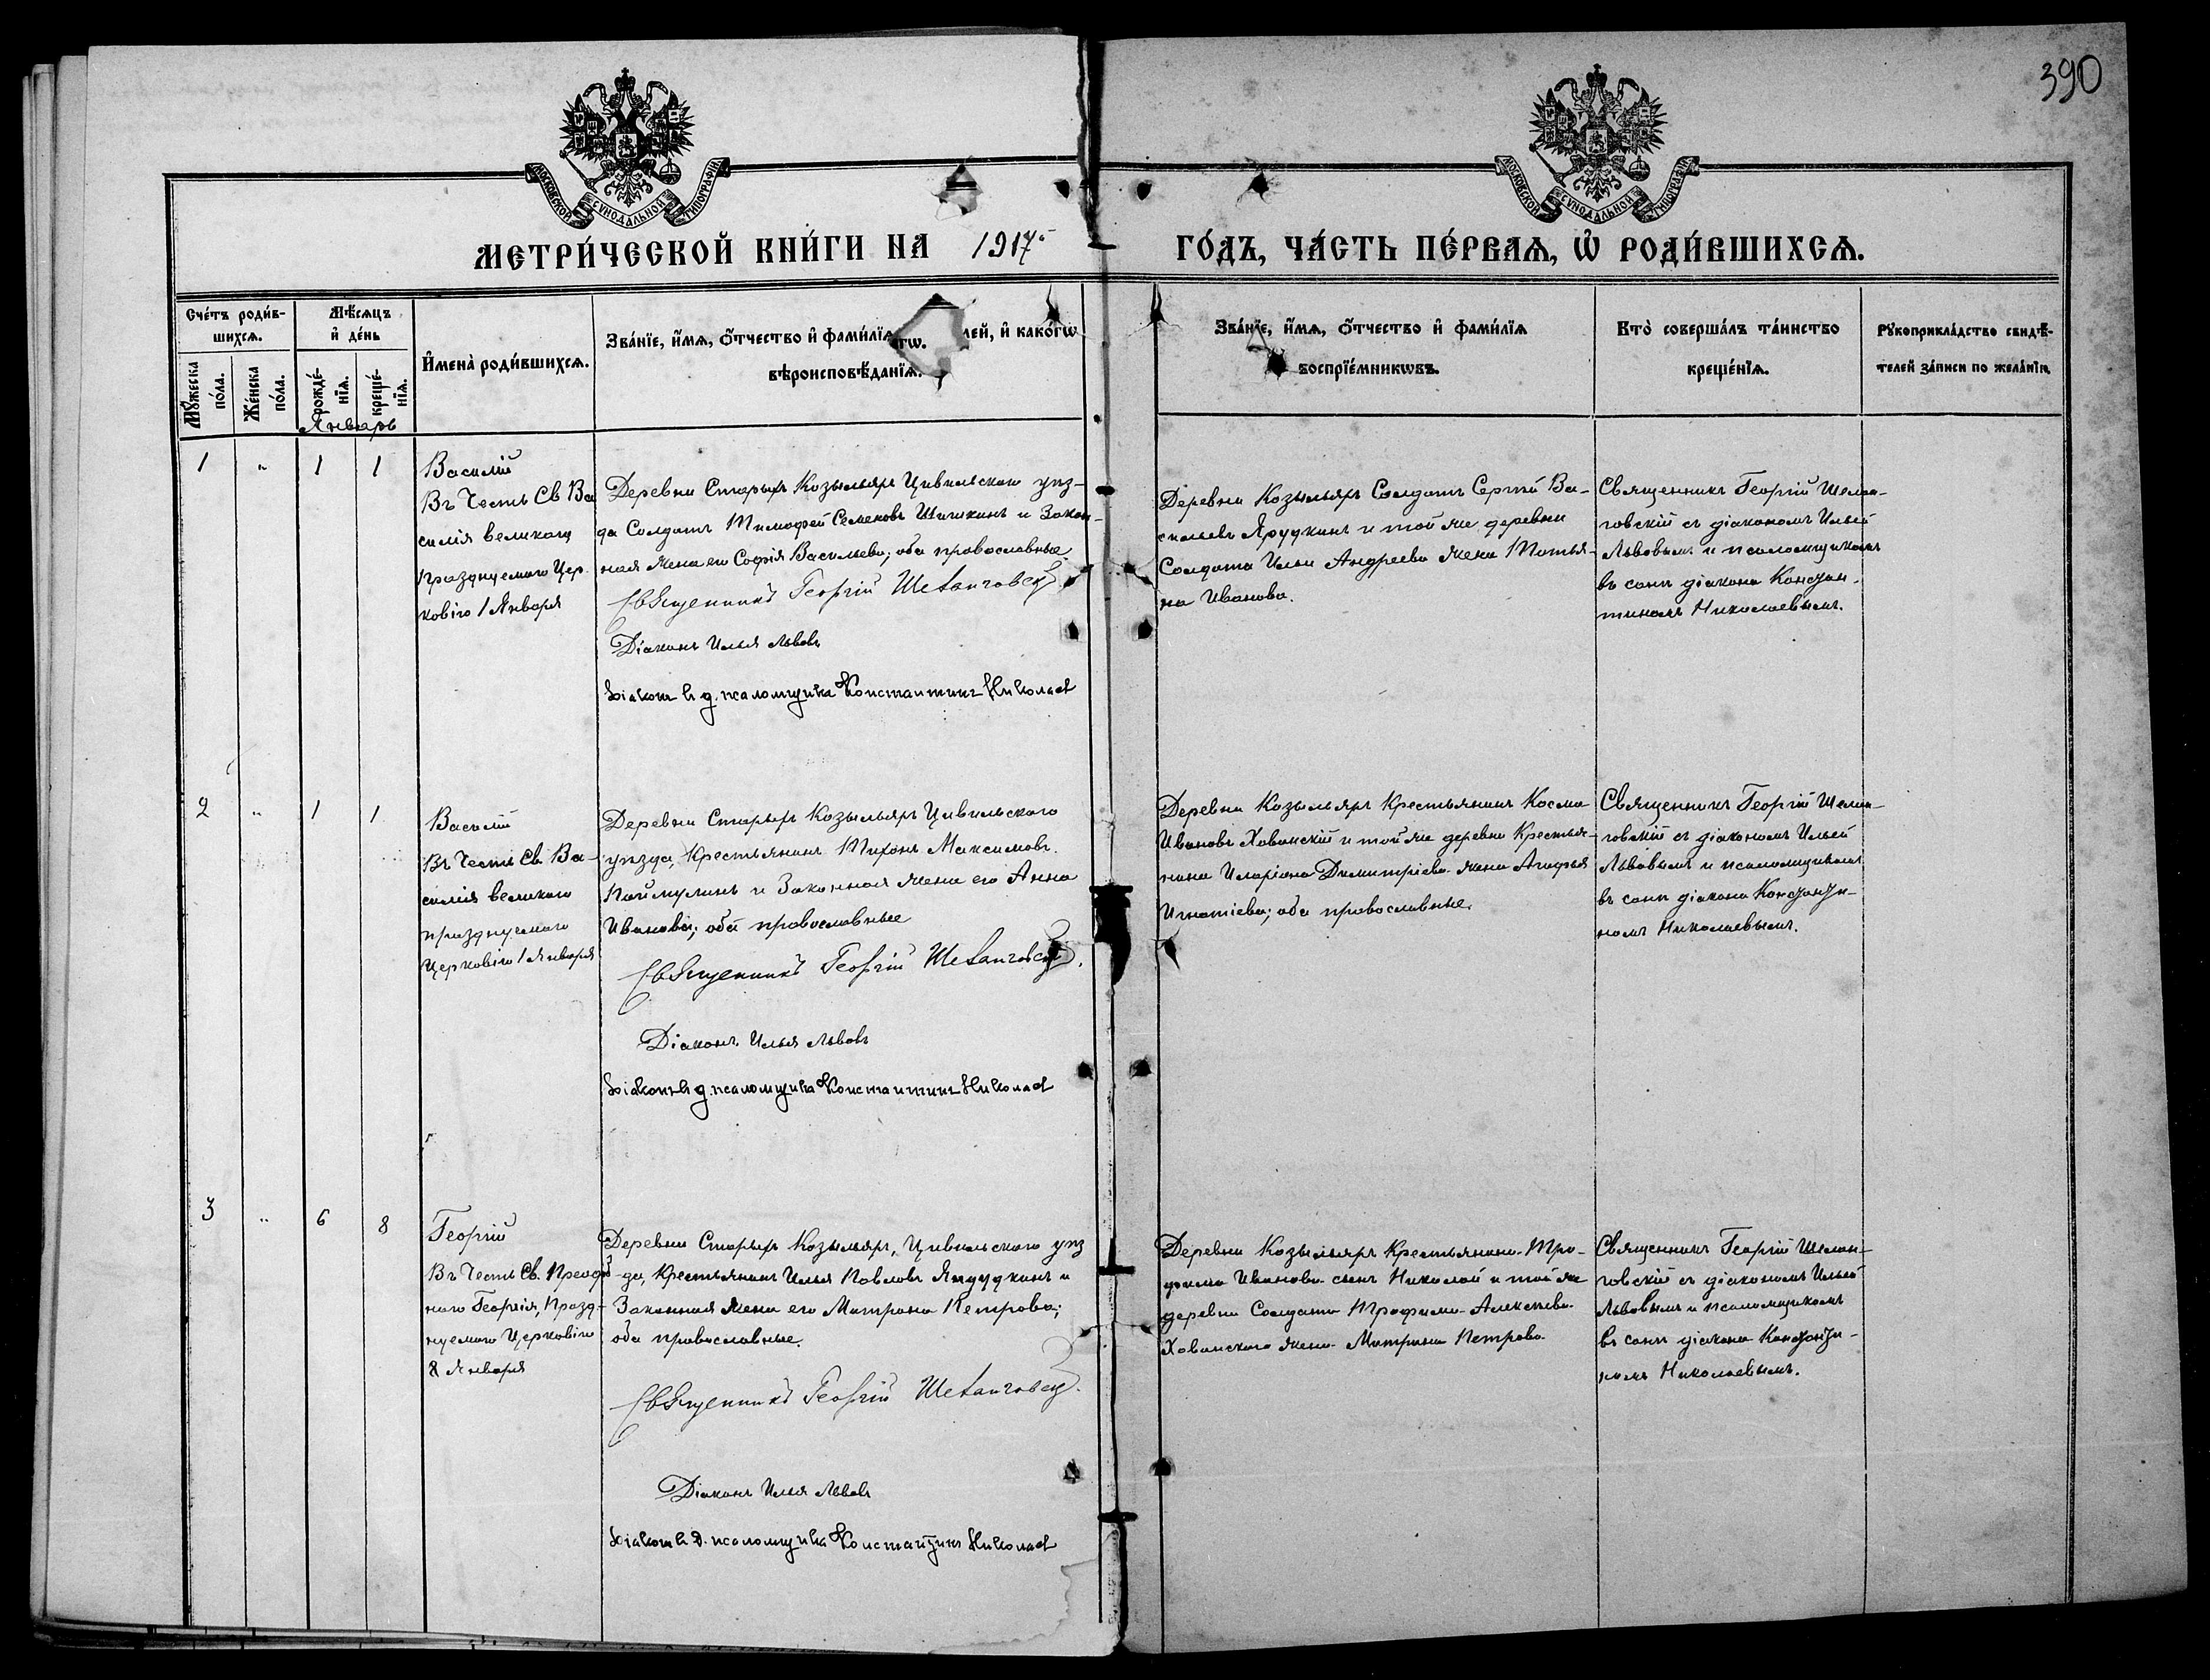 390
МОСКОВСКОЙ СѴНОДАЛЬНОЙ ТИПОГРАФІИ
МОСКОВСКОЙ СѴНОДАЛЬНОЙ ТИПОГРАФІИ
МЕТРИ́ЧЕСКОЙ КНИ́ГИ НА 1917 ГО́ДЪ, ЧА́СТЬ ПЕ́РВАѦ, Ѡ҆ РОДИ́ВШИХСѦ.
Сче́тъ роди́в-
шихсѧ.
Мꙋ́жеска
по́ла.
Же́нска
по́ла.
Мѣ́сѧцъ
и҆ де́нь
рожде́-
нїѧ.
креще́-
нїѧ.
Январь
И҆мена̀ роди́вшихсѧ.
Зва́нїе, и҆́мѧ, ѻ҆́тчество и҆ фами́лїѧ лей, и҆ како́гѡ
вѣроисповѣ́данїѧ.
Зва́нїе, и҆́мѧ, ѻ҆́тчество и҆ фами́лїѧ
воспрїе́мникѡвъ.
Кто̀ соверша́лъ та́инство
креще́нїѧ.
Рꙋкоприкла́дство свидѣ́-
телей за́писи по жела́нїю.
1 " 1 1
Василій
Въ Честь Св Ва
силія великаго
празднуемаго Цер
ковію 1 Января
Деревни Старыхъ Козыльяръ Цивильскаго уѣз-
да Солдатъ Тимофей Семеновъ Шишкинъ и Закон-
ная жена его Софія Васильева; оба православные.
Священникъ Георгій Шеланговскій.
Діаконъ Илья Львовъ
Діаконъ и. д. псаломщика Константинъ Николаевъ
Деревни Козыльяръ Солдатъ Сергій Ва-
сильевъ Ярудкинъ и той же деревни
Солдата Ильи Андреева жена Татья-
на Иванова.
Священникъ Георгій Шелан-
говскій съ діакономъ Ильей
Львовымъ и псаломщикомъ
въ санѣ діакона Констан-
тиномъ Николаевымъ.
2 " 1 1
Василій
Въ Честь Св. Ва-
силія великаго
празднуемаго
Церковію 1 Января
Деревни Старыхъ Козыльяръ Цивильскаго
уѣзда, Крестьянинъ Тихонъ Максимовъ
Паймулинъ и Законная жена его Анна
Иванова; оба православные
Священникъ Георгій Шеланговскій.
Діаконъ Илья Львовъ
Діаконъ и. д. псаломщика Константинъ Николаевъ
Деревни Козыльяръ Крестьянинъ Косма
Ивановъ Хованскій и той же деревни Крестья-
нина Иларіона Димитріева жена Агафья
Игнатіева; оба православные.
Священникъ Георгій Шелан-
говскій съ діакономъ Ильей
Львовымъ и псаломщикомъ
въ санѣ діакона Константи-
номъ Николаевымъ.
3 " 6 8
Георгій
Въ Честь Св. Преподоб
наго Георгія, Празд-
нуемаго Церковію
8 Января
Деревни Старыхъ Козыльяръ, Цивильскаго уѣз
да, Крестьянинъ Илья Павловъ Яндудкинъ и
Законная жена его Матрона Петрова;
оба православные.
Священникъ Георгій Шеланговскій.
Діаконъ Илья Львовъ
Діаконъ и. д. псаломщика Константинъ Николаевъ
Деревни Козыльяръ Крестьянина Тро-
фима Иванова сынъ Николай и той же
деревни Солдата Трофима Алексѣева
Хованскаго жена Матрона Петрова.
Священникъ Георгій Шелан-
говскій съ діакономъ Ильей
Львовымъ и псаломщикомъ
въ санѣ діакона Константи-
номъ Николаевымъ.